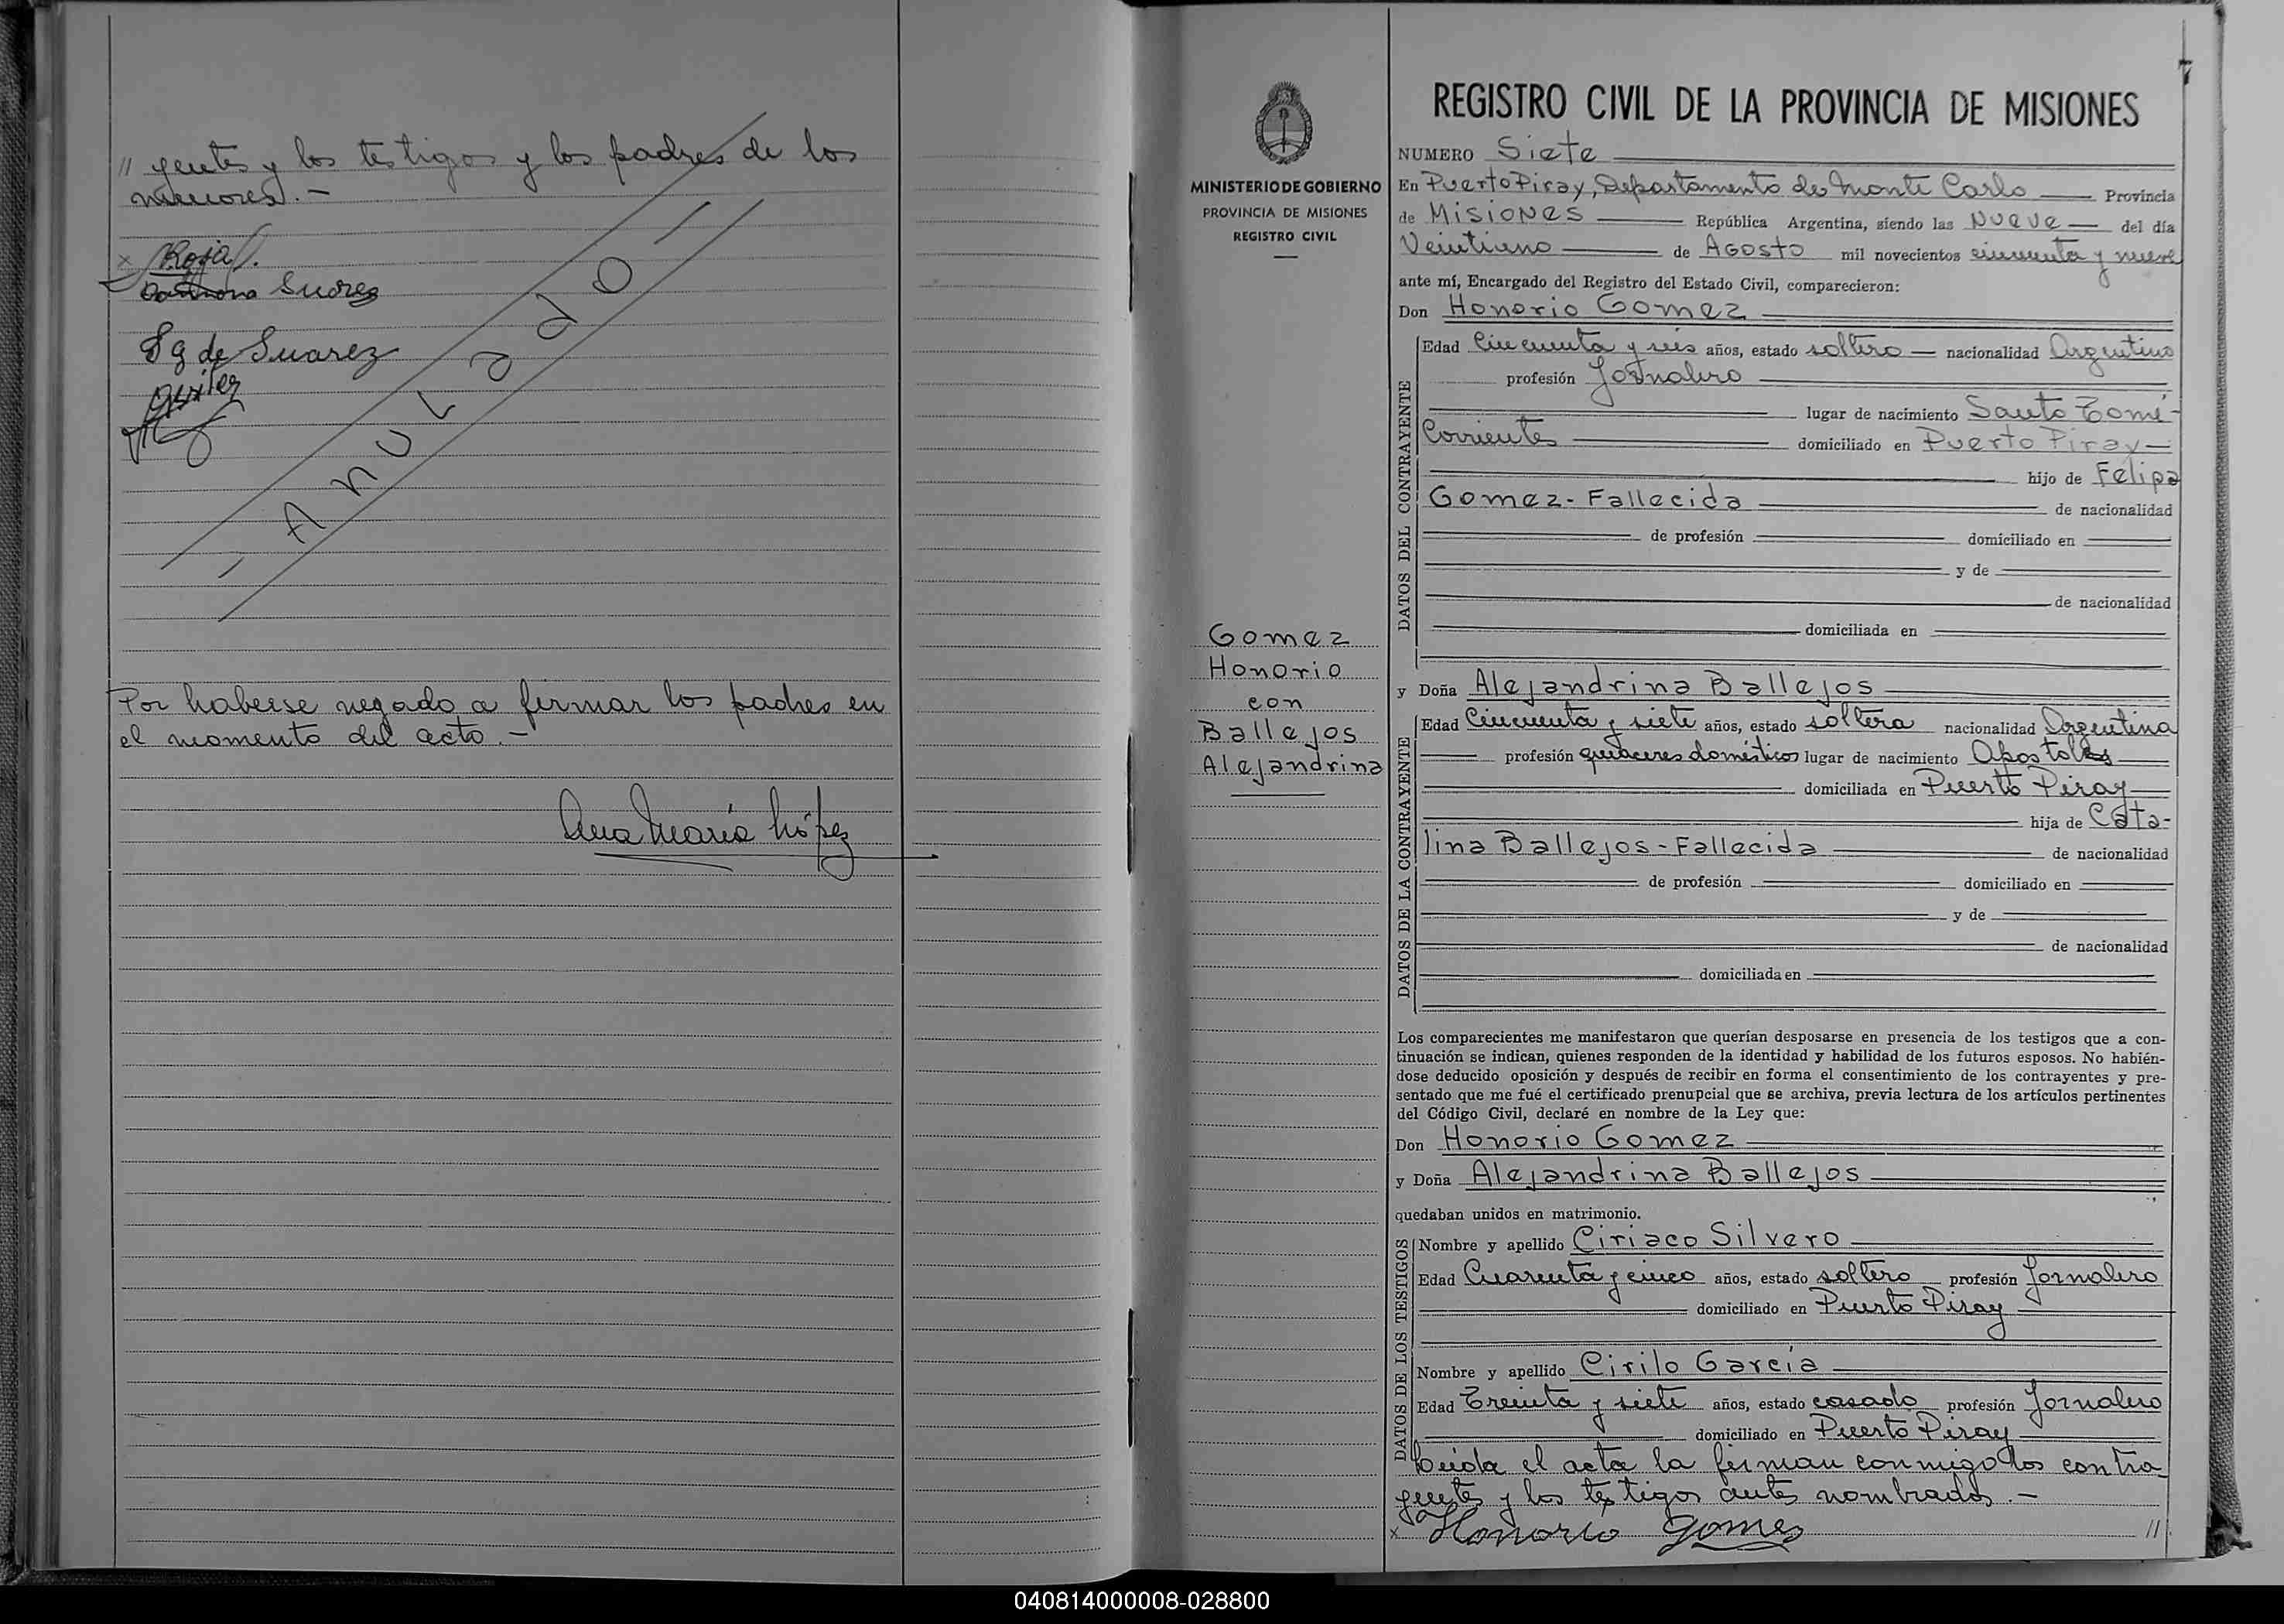 // yentes y los testigos y los padres de los
menores. -
x Roja
Ramona Suarez
S g de Suarez
- Anulado -
Por haberse negado a firmar los padres en
el momento del acto. -
Ana María López
MINISTERIO DE GOBIERNO
PROVINCIA DE MISIONES
REGISTRO CIVIL
Gomez
Honorio
con
Ballejos
Alejandrina
7
REGISTRO CIVIL DE LA PROVINCIA DE MISIONES
NUMERO Siete
En Puerto Piray, Departamento de Monte Carlo Provincia
de Misiones República Argentina, siendo las Nueve del día
Veintiuno de Agosto mil novecientos cincuenta y nueve
ante mí, Encargado del Registro del Estado Civil, comparecieron:
Don Honorio Gomez
DATOS DEL CONTRAYENTE
Edad Cincuenta y seis años, estado soltero nacionalidad Argentino
profesión Jornalero
lugar de nacimiento Santo Tomé -
Corrientes domiciliado en Puerto Piray
hijo de Felipa
Gomez - Fallecida de nacionalidad
de profesión domiciliado en
y de
de nacionalidad
domiciliada en
y Doña Alejandrina Ballejos
DATOS DE LA CONTRAYENTE
Edad Cincuenta y siete años, estado soltera nacionalidad Argentina
profesión quehaceres domésticos lugar de nacimiento Apostoles
domiciliada en Puerto Piray
hija de Cata-
lina Ballejos - Fallecida de nacionalidad
de profesión domiciliado en
y de
de nacionalidad
domiciliada en
Los comparecientes me manifestaron que querían desposarse en presencia de los testigos que a con-
tinuación se indican, quienes responden de la identidad y habilidad de los futuros esposos. No habién-
dose deducido oposición y después de recibir en forma el consentimiento de los contrayentes y pre-
sentado que me fué el certificado prenupcial que se archiva, previa lectura de los artículos pertinentes
del Código Civil, declaré en nombre de la Ley que:
Don Honorio Gomez
y Doña Alejandrina Ballejos
quedaban unidos en matrimonio.
DATOS DE LOS TESTIGOS
Nombre y apellido Ciriaco Silvero
Edad Cuarenta y cinco años, estado soltero profesión Jornalero
domiciliado en Puerto Piray
Nombre y apellido Cirilo García
Edad Treinta y siete años, estado casado profesión Jornalero
domiciliado en Puerto Piray
Leída el acta la firman conmigo los contra
yentes y los testigos antes nombrados. -
x Honorio Gomes //
040814000008-028800